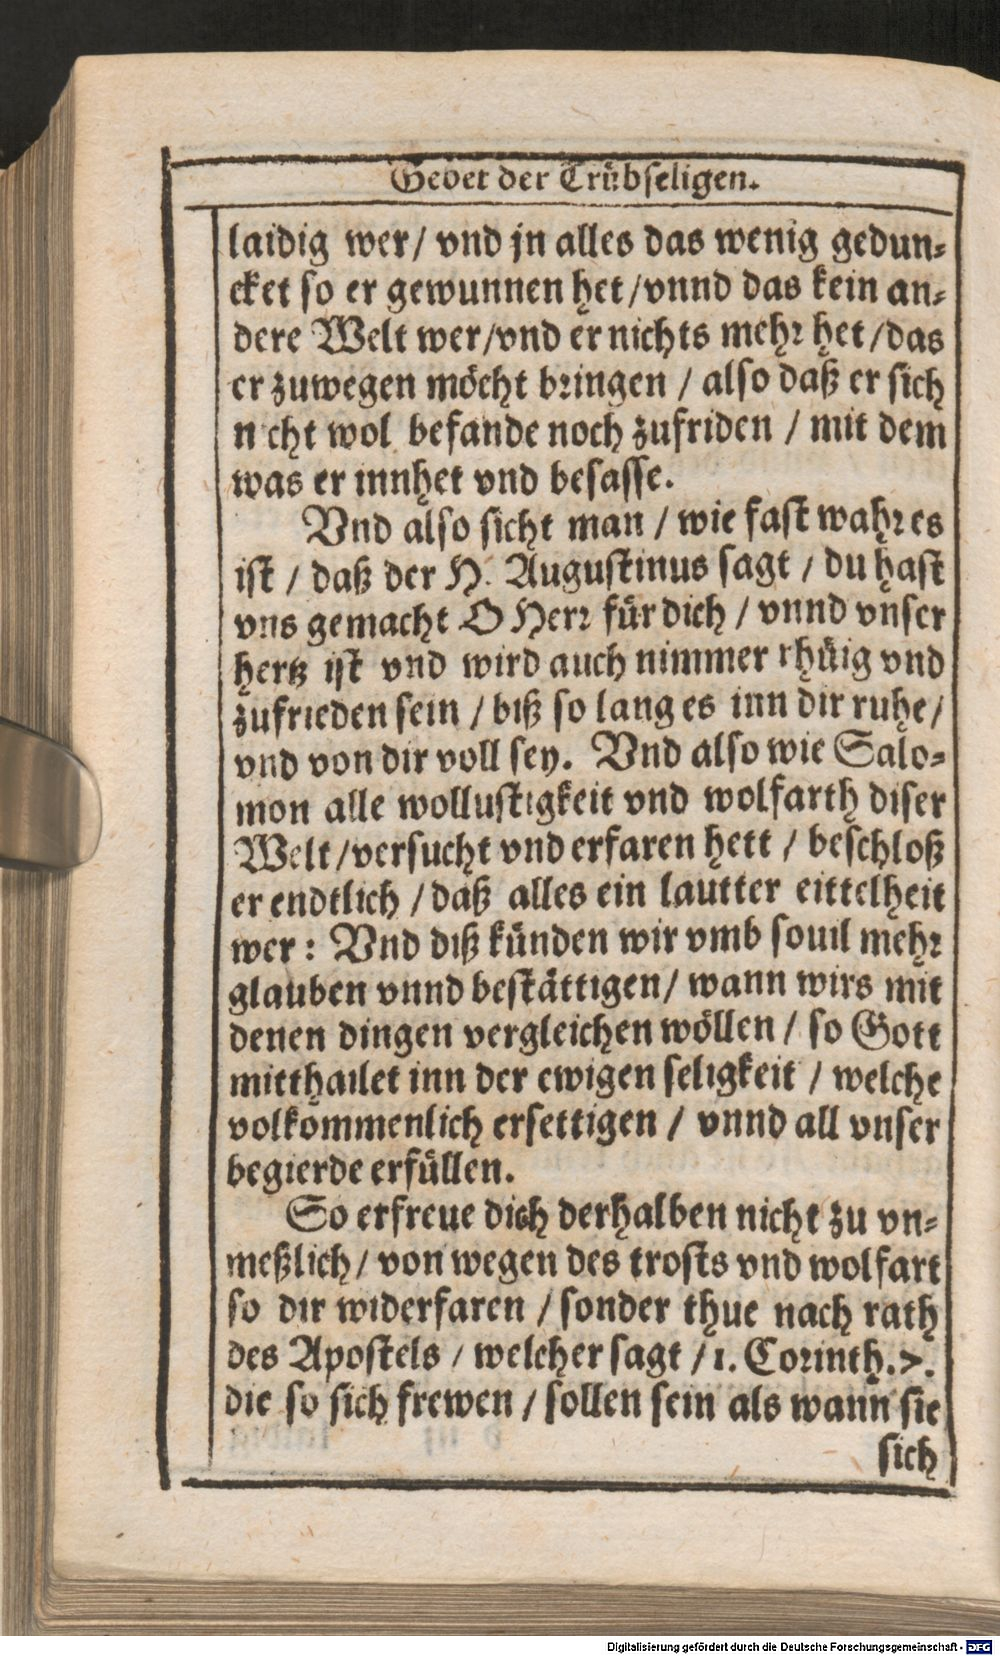 Gebet der Trübseligen.
laidig wer/ vnd jn alles das wenig gedun⸗
cket so er gewunnen het/vnnd das kein an⸗
dere Welt wer/vnd er nichts mehr het/das
er zuwegen möcht bringen / also daß er sich
n cht wol befande noch zufriden / mit dem
was er innhet vnd besasse.
Vnd also sicht man / wie fast wahr es
ist / daß der H. Augustinus sagt / du hast
vns gemacht O Herr für dich / vnnd vnser
hertz ist vnd wird auch nimmer rhüig vnd
zufrieden sein / biß so lang es inn dir ruhe/
vnd von dir voll sey. Vnd also wie Salo⸗
mon alle wollustigkeit vnd wolfarth diser
Welt/versucht vnd erfaren hett / beschloß
er endtlich / daß alles ein lautter eittelheit
wer: Vnd diß künden wir vmb souil mehr
glauben vnnd bestättigen/ wann wirs mit
denen dingen vergleichen wöllen / so Gott
mitthailet inn der ewigen seligkeit / welche
volkommenlich ersettigen / vnnd all vnser
begierde erfüllen.
So erfreue dich derhalben nicht zu vn⸗
meßlich/ von wegen des trosts vnd wolfart
so dir widerfaren / sonder thue nach rath
des Apostels / welcher sagt /1. Corinth.7.
die so sich frewen / sollen sein als wann sie
sich
Digitalisierung gefördert durch die Deutsche Forschungsgemeinschaft - DFG